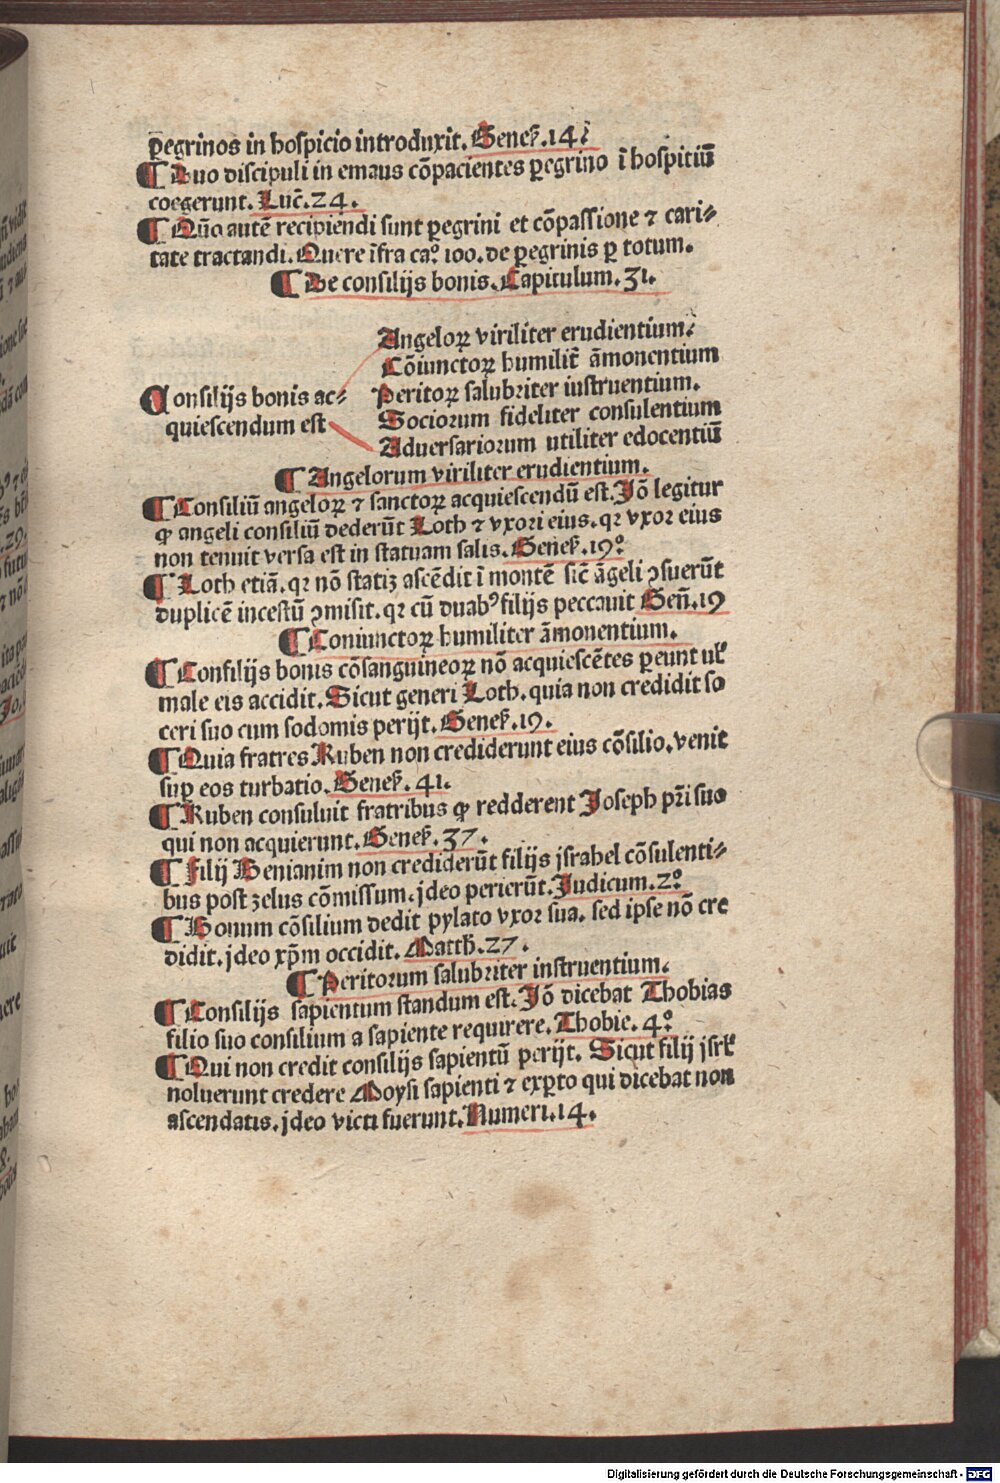 ꝑegrinos in hospicio introduxit. Geneẜ.14⁊
¶ Duo discipuli in emaus cōpacientes ꝑegrino ī hospitiū
coegerunt. Luc̄.24.
¶ Qūo autē recipiendi sunt ꝑegrini et cōpassione ⁊ cari⸗
tate tractandi. Quere īfra caº. 100. de ꝑegrinis ꝑ totum.
¶ De consilijs bonis. Capitulum. 31.
Angeloꝝ viriliter erudientium.
Cōiunctoꝝ humilit̄ āmonentium
Consilijs bonis ac⸗ Peritoꝝ salubriter instruentium.
quiescendum est Sociorum fideliter consulentium
Aduersariorum utiliter edocentiū
¶ Angelorum viriliter erudientium.
¶ Consiliū angeloꝝ ⁊ sanctoꝝ acquiescendū est. Jō legitur
ꝙ angeli consiliū dederūt Loth ⁊ vxori eius. qꝛ vxor eius
non tenuit versa est in statuam salis. Geneẜ.19º
¶ Loth etiā. qꝛ nō statiꝫ ascēdit ī montē sic̄ āgeli ꝯsuerūt
duplicē incestū ꝯmisit. qꝛ cū duabꝰ filijs peccauit Geñ.19
¶ Coniunctoꝝ humiliter āmonentium.
¶ Consilijs bonis cōsanguineoꝝ nō acquiescētes ꝑeunt uł
male eis accidit. Sicut generi Loth. quia non credidit so
ceri suo cum sodomis perijt. Geneẜ.19.
¶ Quia fratres Ruben non crediderunt eius cōsilio. venit
suꝑ eos turbatio. Geneẜ. 41.
¶ Ruben consuluit fratribus ꝙ redderent Joseph pr̄i suo
qui non acquierunt. Geneẜ.37.
¶ Filij Beniamin non crediderūt filijs jsrahel cōsulenti⸗
bus post zelus cōmissum. jdeo perierūt. Judicum.2º
¶ Bonum cōsilium dedit pylato vxor sua. sed ipse nō cre
didit. jdeo xp̄m occidit. Matth̄.27.
¶ Peritorum salubriter instruentium.
¶ Consilijs sapientum standum est. Jō dicebat Thobias
filio suo consilium a sapiente requirere. Thobie. 4º
¶ Qui non credit consilijs sapientū perijt. Sicut filij jsrł
noluerunt credere Moysi sapienti ⁊ exꝑto qui dicebat non
ascendatis. jdeo victi fuerunt. Numeri.14.
Digitalisierung gefördert durch die Deutsche Forschungsgemeinschaft - DFG